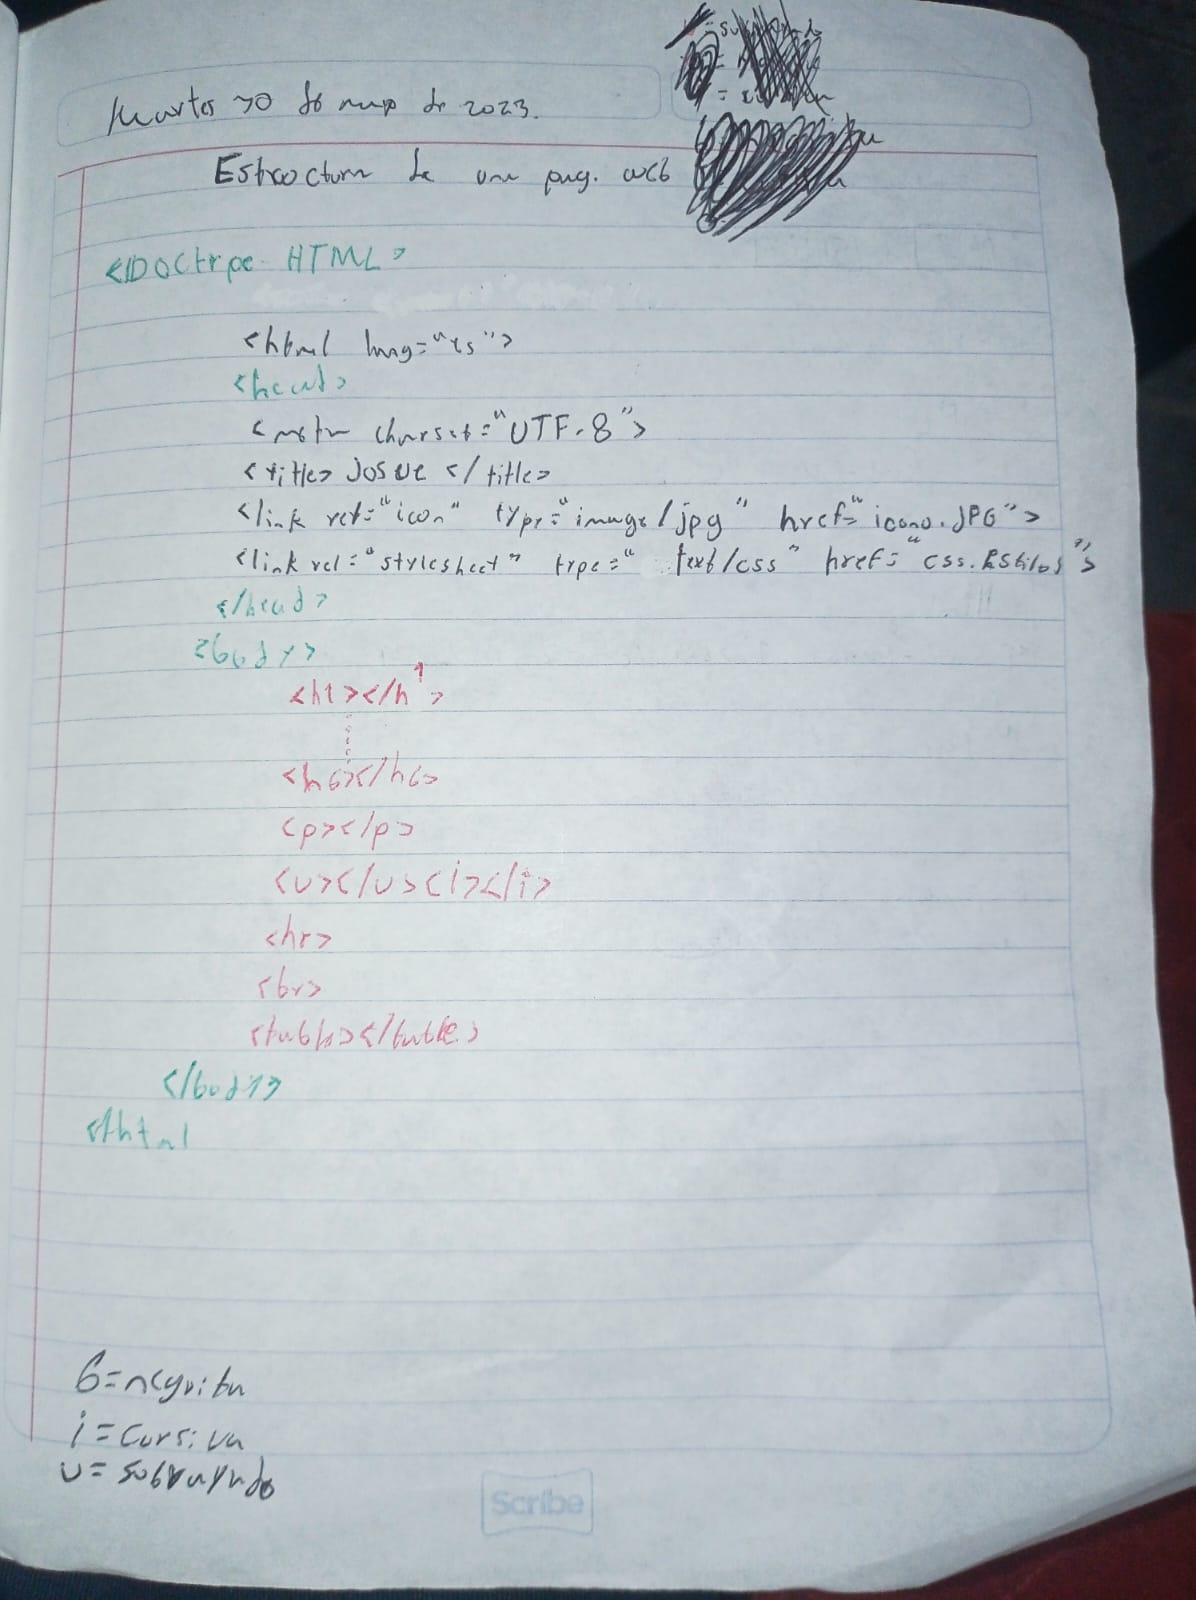 Martes 30 de may de 2023.
Estroctura de una pag. web
<!DOCtype HTML>
<html lang="es">
<head>
<meta charset="UTF-8">
<title> Josue </title>
<link rel="icon" type="image/jpg" href="icono.JPG">
<link rel="stylesheet" type="text/css" href="css.Estilos">
</head>
<body>
<h1></h1>
<h6></h6>
<p></p>
<u></u><i></i>
<hr>
<br>
<table></table>
</body>
</html
b=negrita
i=Cursiva
u=subrayado
Scribe